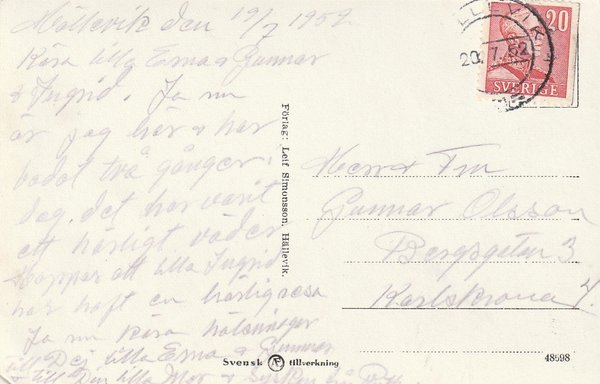 Hällevik den 19/7 1952.
Kära lilla Erna & Gunnar
& Ingrid. Ja nu
är jag här & har
badat två gånger.
Jag. det har varit
ett härligt väder
hoppas att lilla Ingrid
har haft en härlig resa
Ja nu kära hälsningar
till Dej lilla Erna & Gunnar
& till Din lilla Mor &
LLEVIK
20.7.52
20
SVERIGE
Förlag: Leif Simonsson, Hällevik.
Herr & Fru
Gunnar Olsson
Bergsgatan 3
Karlskrona
Svensk Æ tillverkning
48598